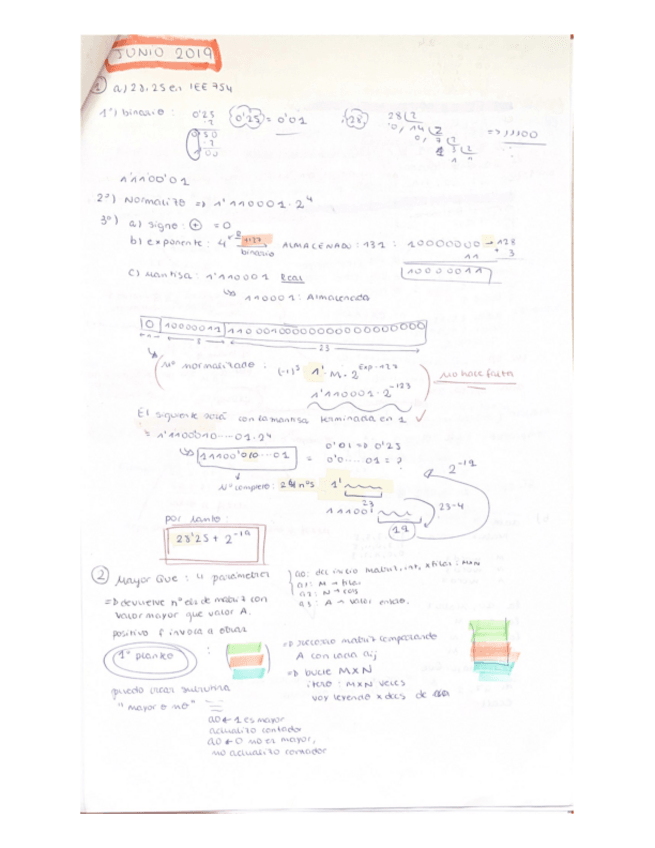 JUNIO 2019
① a) 28.25 en IEEE 754
1º) binario : 0'25 0'25 = 0'01 28 28 2 => 11100
11100'01
2º) Normalizo => 1'110001 · 2⁴
3º) a) signo : ⊕ = 0
b) exponente : 4 +127 binario ALMACENADO : 131 : 10000000 → 128
11 + 3
10000011
c) Mantisa : 1'110001 Real
110001 : Almacenada
0 10000011 11000100000000000000000
1 8 23
Nº normalizado : (-1)ˢ 1' M · 2^Exp-127 No hace falta
1'110001 · 2^-123
El siguiente será con la mantisa terminada en 1
= 1'1100010....01 · 2⁴
1110001 0....01 = 0'01 => 0'25
0'0.....01 = ?
2^-19
Nº completo : 24 nºs 1'
23
11100' 23-4
19
por tanto :
28'25 + 2^-19
② Mayor Que : 4 parámetros
a0: dir inicio matriz, int, x filas: MxN
a1: M → filas
a2: N → cols
a3: A → valor
=> devuelve nº els de matriz con
valor mayor que valor A.
positivo e invoca a otras
1º planteo :
=> recorro matriz comparando
A con cada aij
=> bucle MXN
itero : MXN veces
voy leyendo x dirs de
puedo crear subrutina
"mayor o no"
a0 ← 1 es mayor
actualizo contador
a0 ← 0 no es mayor,
no actualizo contador